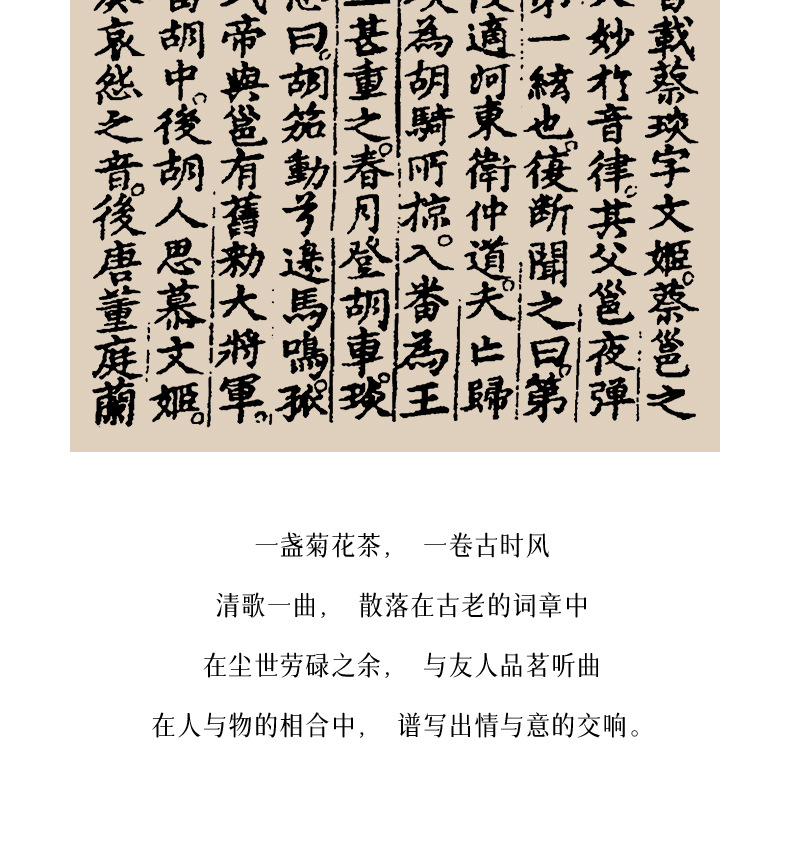 載蔡琰字文姬。蔡邕之
妙於音律。其父邕夜弹
第一絃也。復断聞之曰。第
適河東衛仲道。夫亡歸
為胡騎所掠。入番為王
甚重之。春月登胡車。琰
曰。胡笳動兮邊馬鳴。孤
帝與邕有舊勅大將軍。
胡中。後胡人思慕文姬。
哀怨之音。後唐董庭蘭
一盏菊花茶， 一卷古时风
清歌一曲， 散落在古老的词章中
在尘世劳碌之余， 与友人品茗听曲
在人与物的相合中， 谱写出情与意的交响。